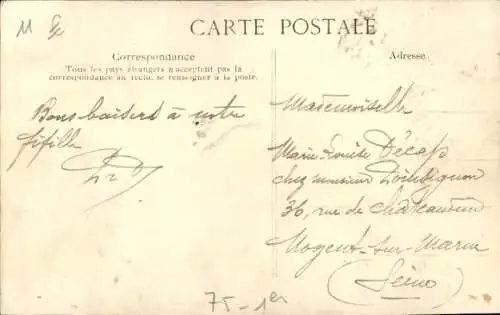 M
CARTE POSTALE
Correspondance
Tous les pays étrangers n'acceptent pas la
correspondance au recto, se renseigner à la poste.
Adresse
Bons baisers à notre
fifille
Mademoiselle
Marie-Louise Décap
chez monsieur
36, rue de Châteaudun
Nogent-sur-Marne
(Seine)
75-1er